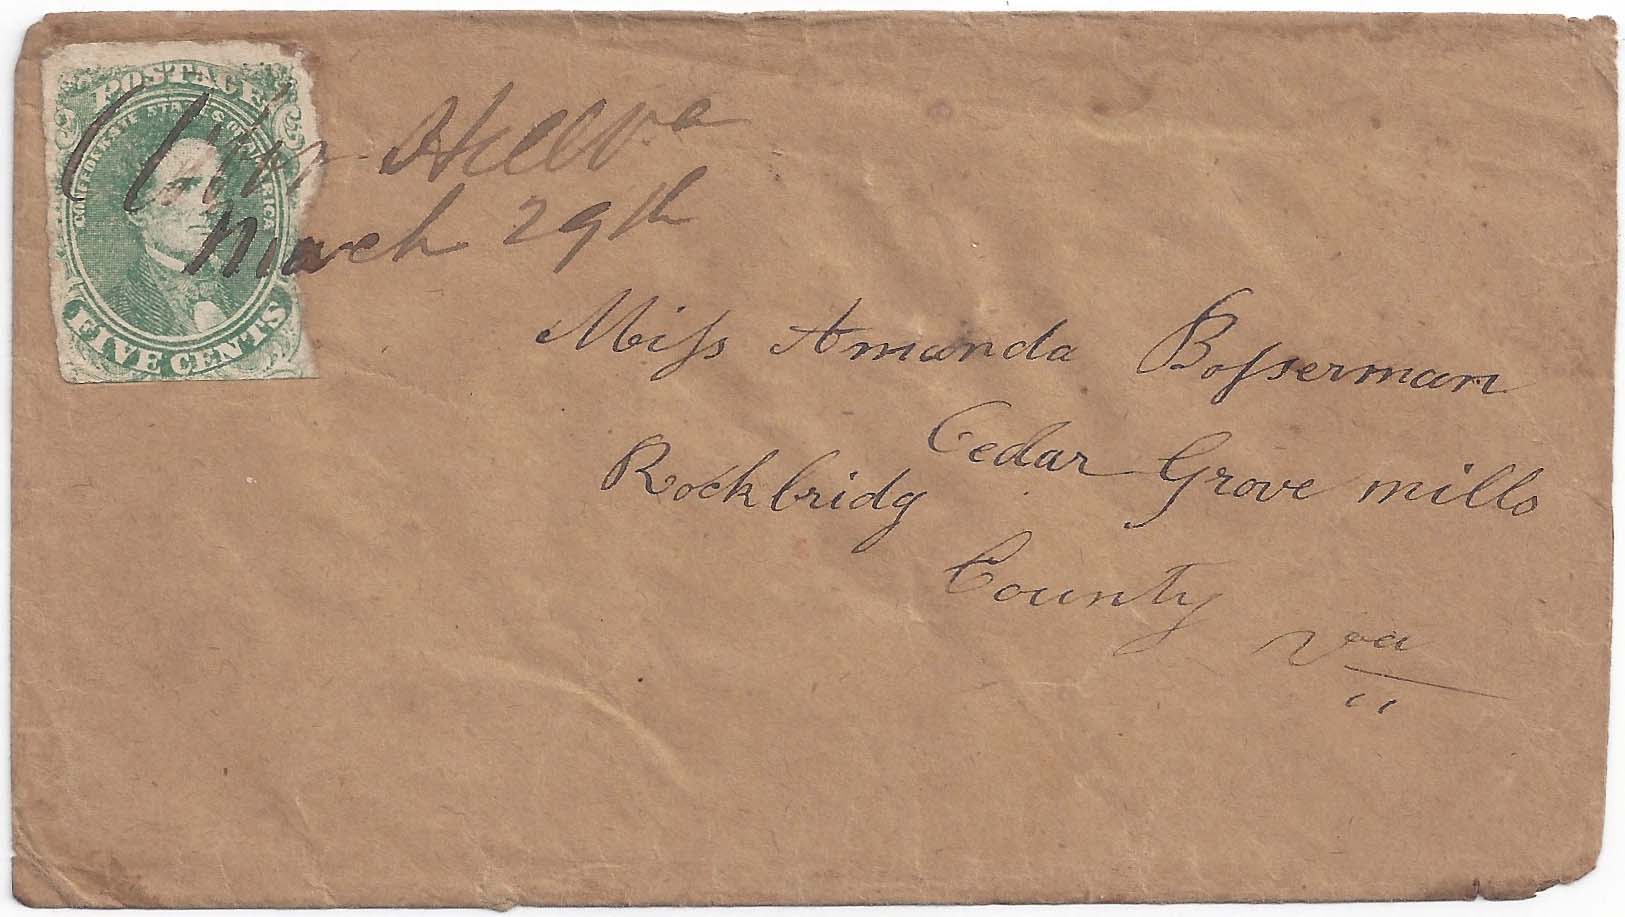 POSTAGE
CONFEDERATE STATES OF AMERICA
FIVE CENTS
Hill Va
March 29th
Miss Amanda Bosserman
Cedar Grove mills
Rockbridg
County
Va